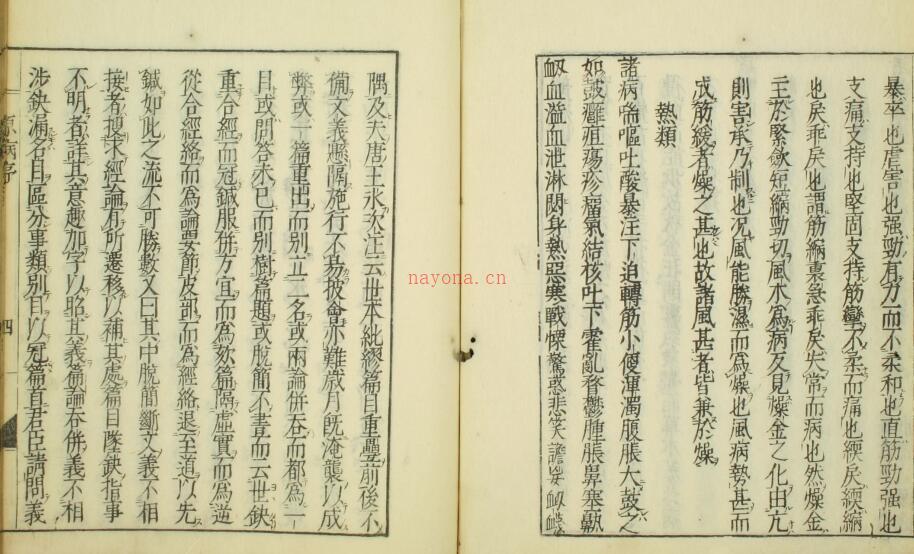 暴卒也虐害也强勁有力而不柔和也直筋勁强也
支痛支持也堅固支持筋攣不柔而痛也緛戾緛縮
也戾乖戾也謂筋縮裏急乖戾失常而病也然燥金
主於緊斂短縮勁切風木為病反見燥金之化由亢
則害承乃制也况風能勝濕而為燥也風病勢甚而
成筋緩者燥之甚也故諸風甚者皆兼於燥
熱類
諸病喘嘔吐酸暴注下迫轉筋小便渾濁腹脹大鼓之
如鼓癰疽瘍疹瘤氣結核吐下霍亂瞀鬱腫脹鼻塞鼽
衄血溢血泄淋閟身熱惡寒戰慄驚惑悲笑譫妄衄衊
隅及大唐王冰次注云世本紕繆篇目重疊前後不
倫文義懸隔施行不易披會亦難歲月既淹襲以成
弊或一篇重出而別立二名或兩論併吞而都為一
目或問答未已而別樹篇題或脫簡不書而云世缺
重合經而冠鍼服併方宜而為欬篇隔虛實而為逆
從合經絡而為論要節皮部而為經絡退至道以先
鍼如此之流不可勝數又曰其中脫簡斷文義不相
接者搜求經論有所遷移以補其處篇目墜缺指事
不明者詳其意趣加字以昭其義篇論吞併義不相
涉缺漏名目區分事類別目以冠篇首君臣請問義
原病序
四
nayona.cn